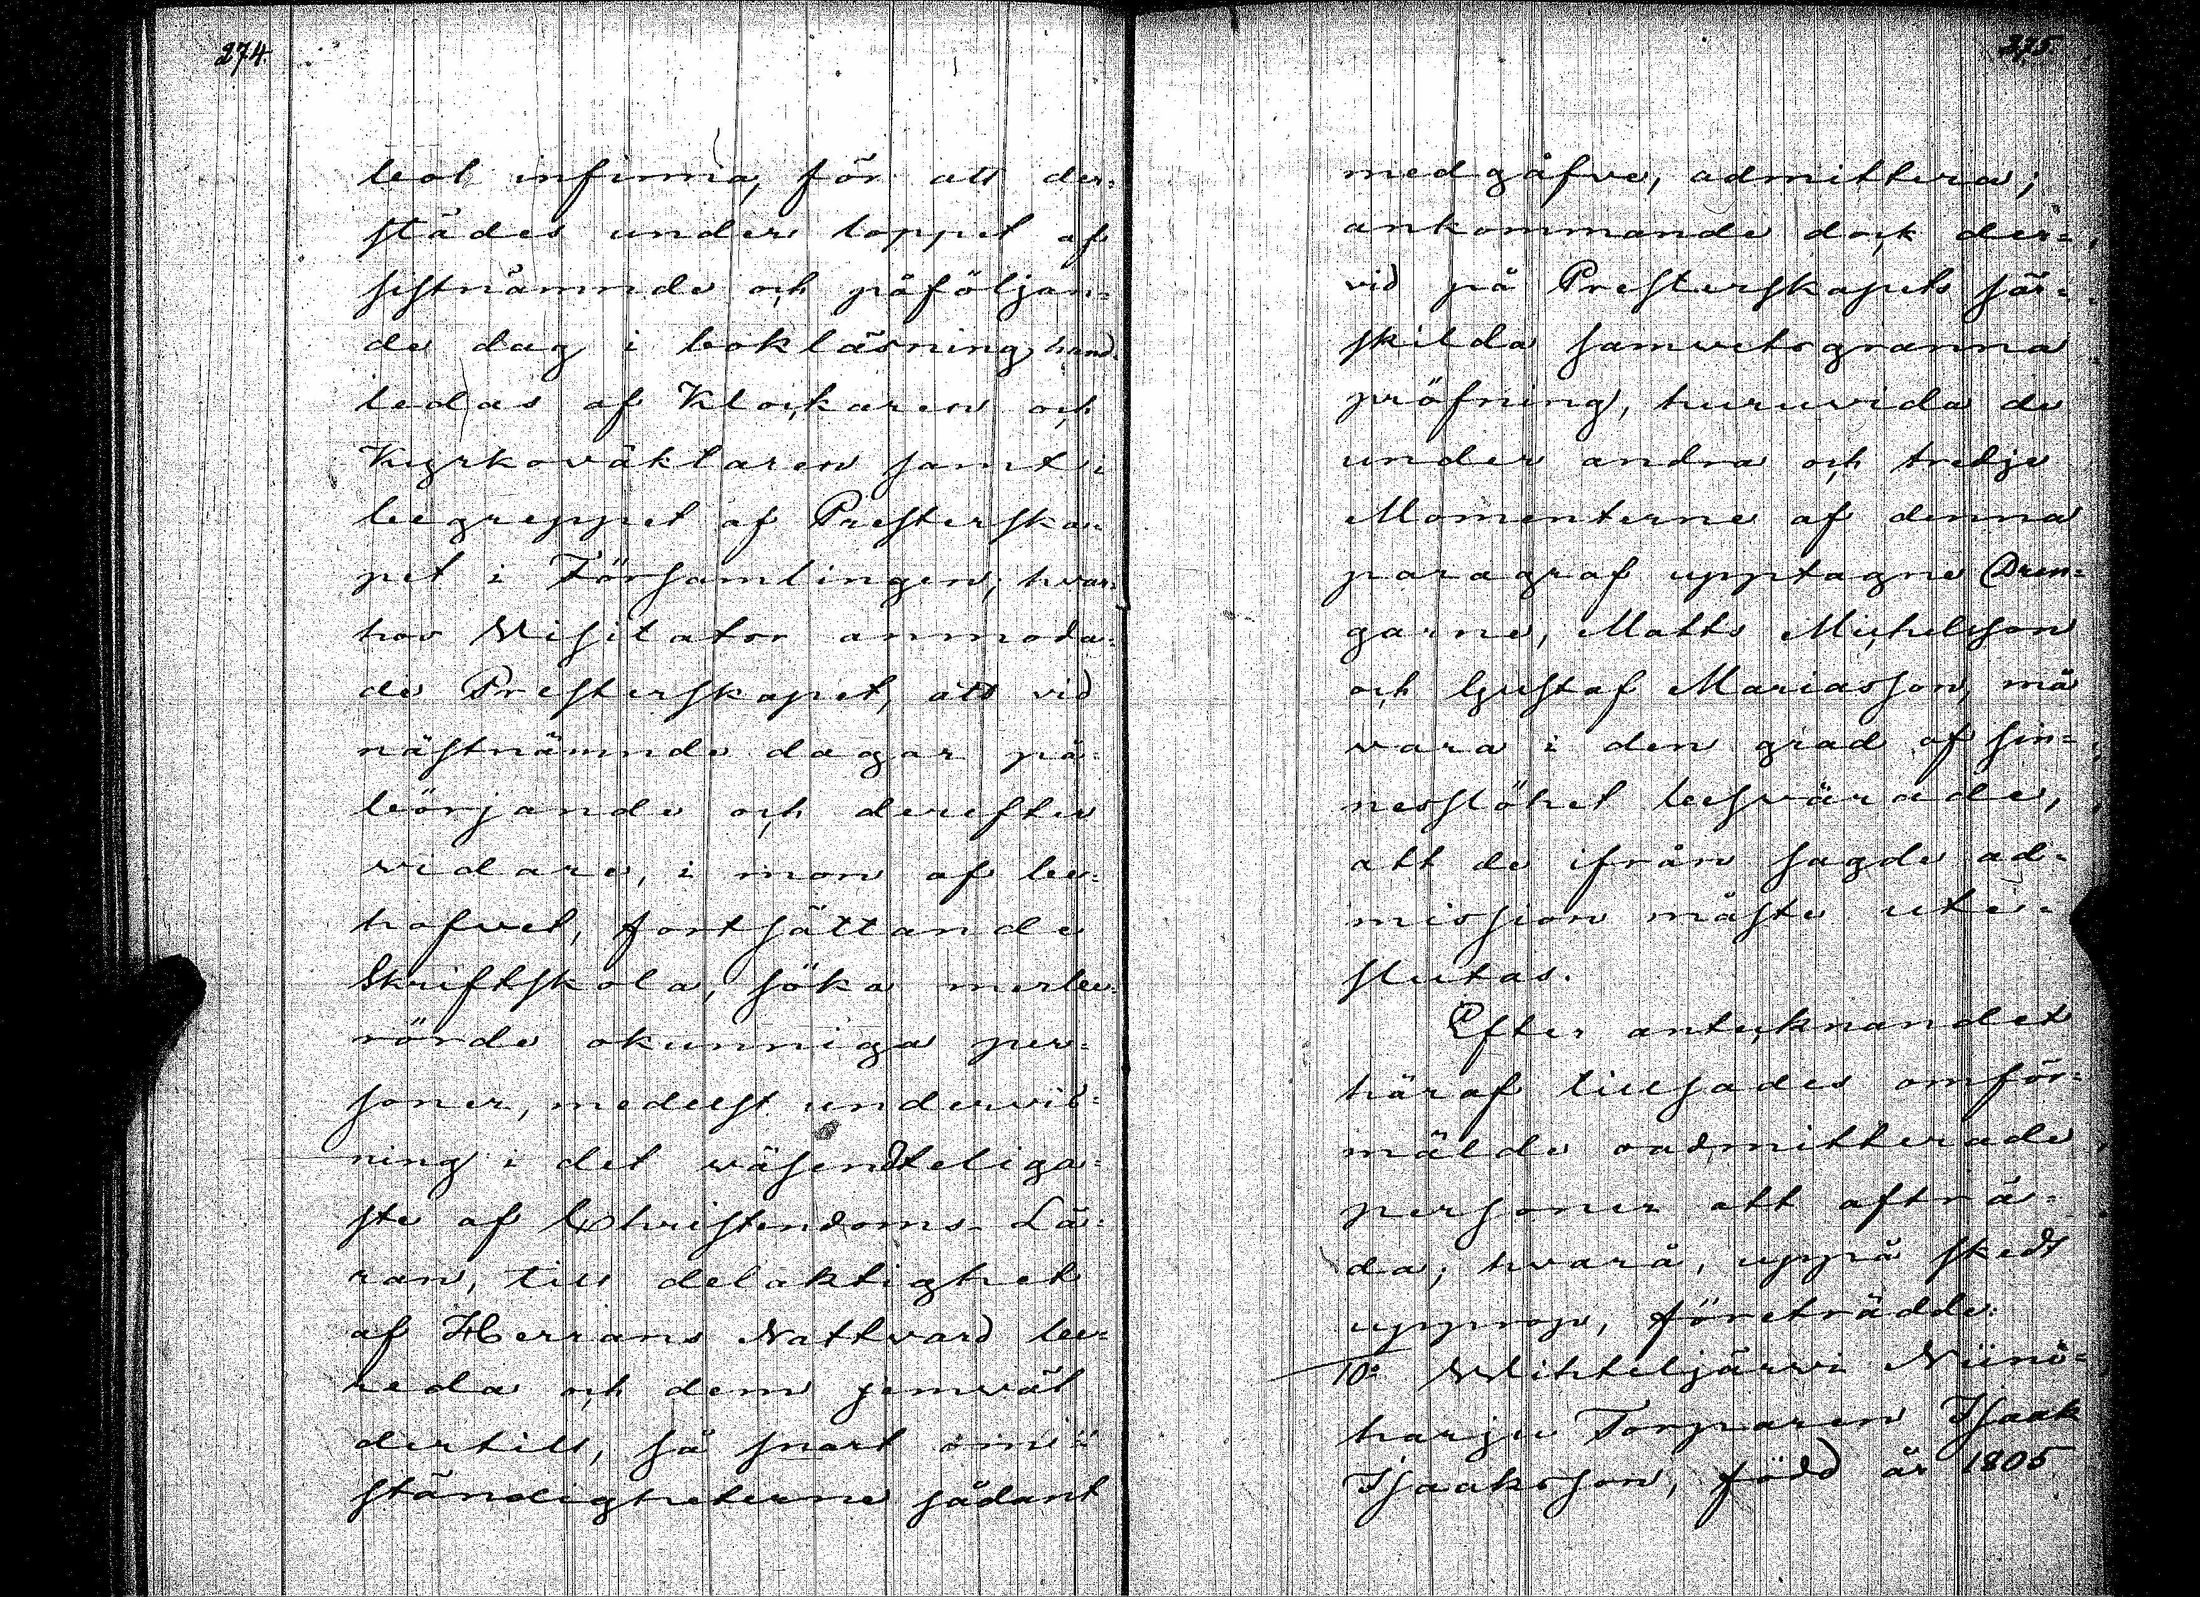 274.
bol infinna, för att der-
städes under loppet af
sistnämnde och påföljan-
de dag i bokläsning hand-
ledas af Klockaren och
Kyrkoväktaren samt i
begreppet af Presterska-
pet i Församlingen; hvar-
hos Visitator anmoda-
de Presterskapet, att vid
nästnämnde dagar på-
börjande och derefter
vidare, i mon af be-
hofvet, fortsättande
Skriftskola, söka merbe-
rörde okunniga per-
soner, medelst undervis-
ning i det väsendteliga-
ste af Christendoms-Lä-
ran, till delaktighet
af Herrans Nattvard be-
reda och dem jemväl
dertill, så snart om-
ständigheterne sådant
275.
medgåfve, admittera;
ankommande dock der-
vid på Presterskapets sär-
skilda samvetsgranna
pröfning, huruvida de
under andra och tredje
Momenterne af denna
paragraf upptagne Dren-
garne, Matts Michelsson
och Gustaf Mariasson, må
vara i den grad af sin-
nesslöhet besvärade,
att de ifrån sagde ad-
mission måste ute-
slutas.
Efter antecknandet
häraf tillsades omför-
mälde oadmitterade
personer att afträ-
da; hvarå, uppå skedt
upprop, företrädde:
10: Vihteljärvi Niini-
harju Torparen Isaak
Isaaksson, född år 1805